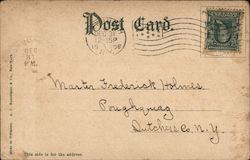 Post Card.
DEC 31
12-30P
1906
DEC
31
P.M.
Master Frederick Holmes
Poughquag
Dutchess Co. N.Y.
This side is for the address.